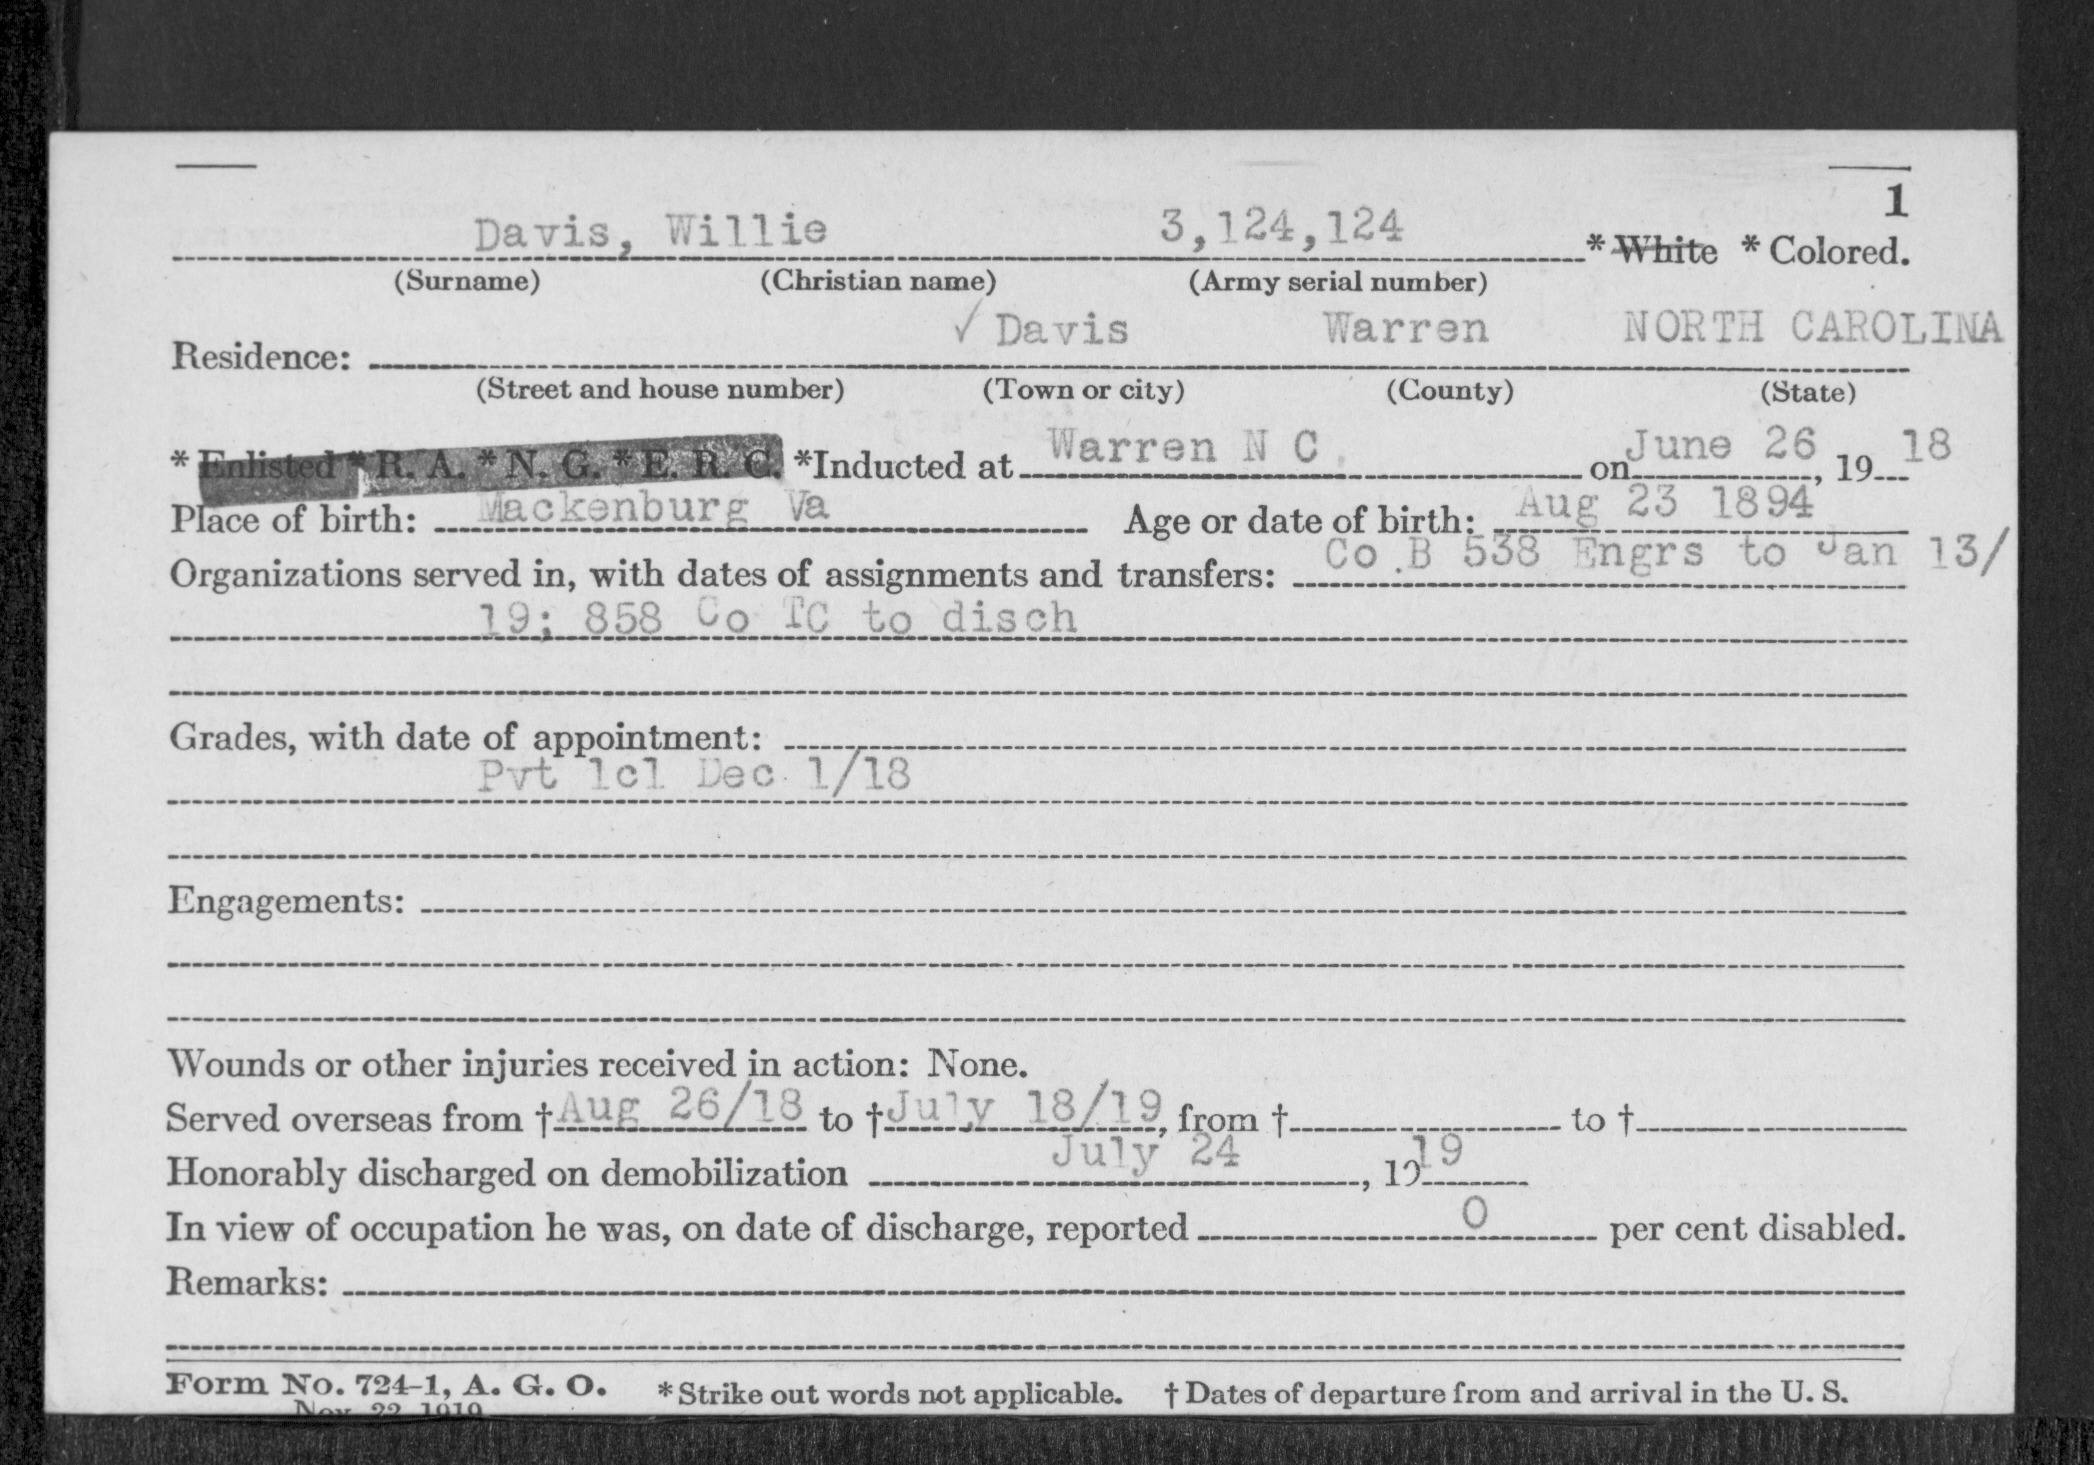 1
Davis, Willie 3,124,124 * White * Colored.
(Surname) (Christian name) (Army serial number)
✓ Davis Warren NORTH CAROLINA
Residence:
(Street and house number) (Town or city) (County) (State)
* Enlisted * R. A. * N. G. * E. R. C. *Inducted at Warren N C. on June 26, 19 18
Place of birth: Mackenburg Va Age or date of birth: Aug 23 1894
Organizations served in, with dates of assignments and transfers: Co B 538 Engrs to Jan 13/
19; 858 Co TC to disch
Grades, with date of appointment:
Pvt 1cl Dec 1/18
Engagements:
Wounds or other injuries received in action: None.
Served overseas from † Aug 26/18 to † July 18/19, from † to †
Honorably discharged on demobilization July 24, 19 19
In view of occupation he was, on date of discharge, reported 0 per cent disabled.
Remarks:
Form No. 724-1, A. G. O. * Strike out words not applicable. † Dates of departure from and arrival in the U. S.
Nov. 22, 1919